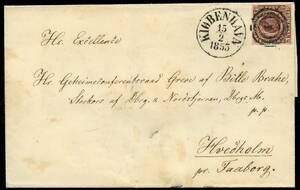 KIØBENHAVN
15
2
1853
Hr. Excellence
Hr. Geheimeconferentsraad Greve af Bille Brahe,
Storkors af Dbrg. og Nordstjernen, Dbrgs M.
p. p.
Hvedholm
pr. Faaborg.